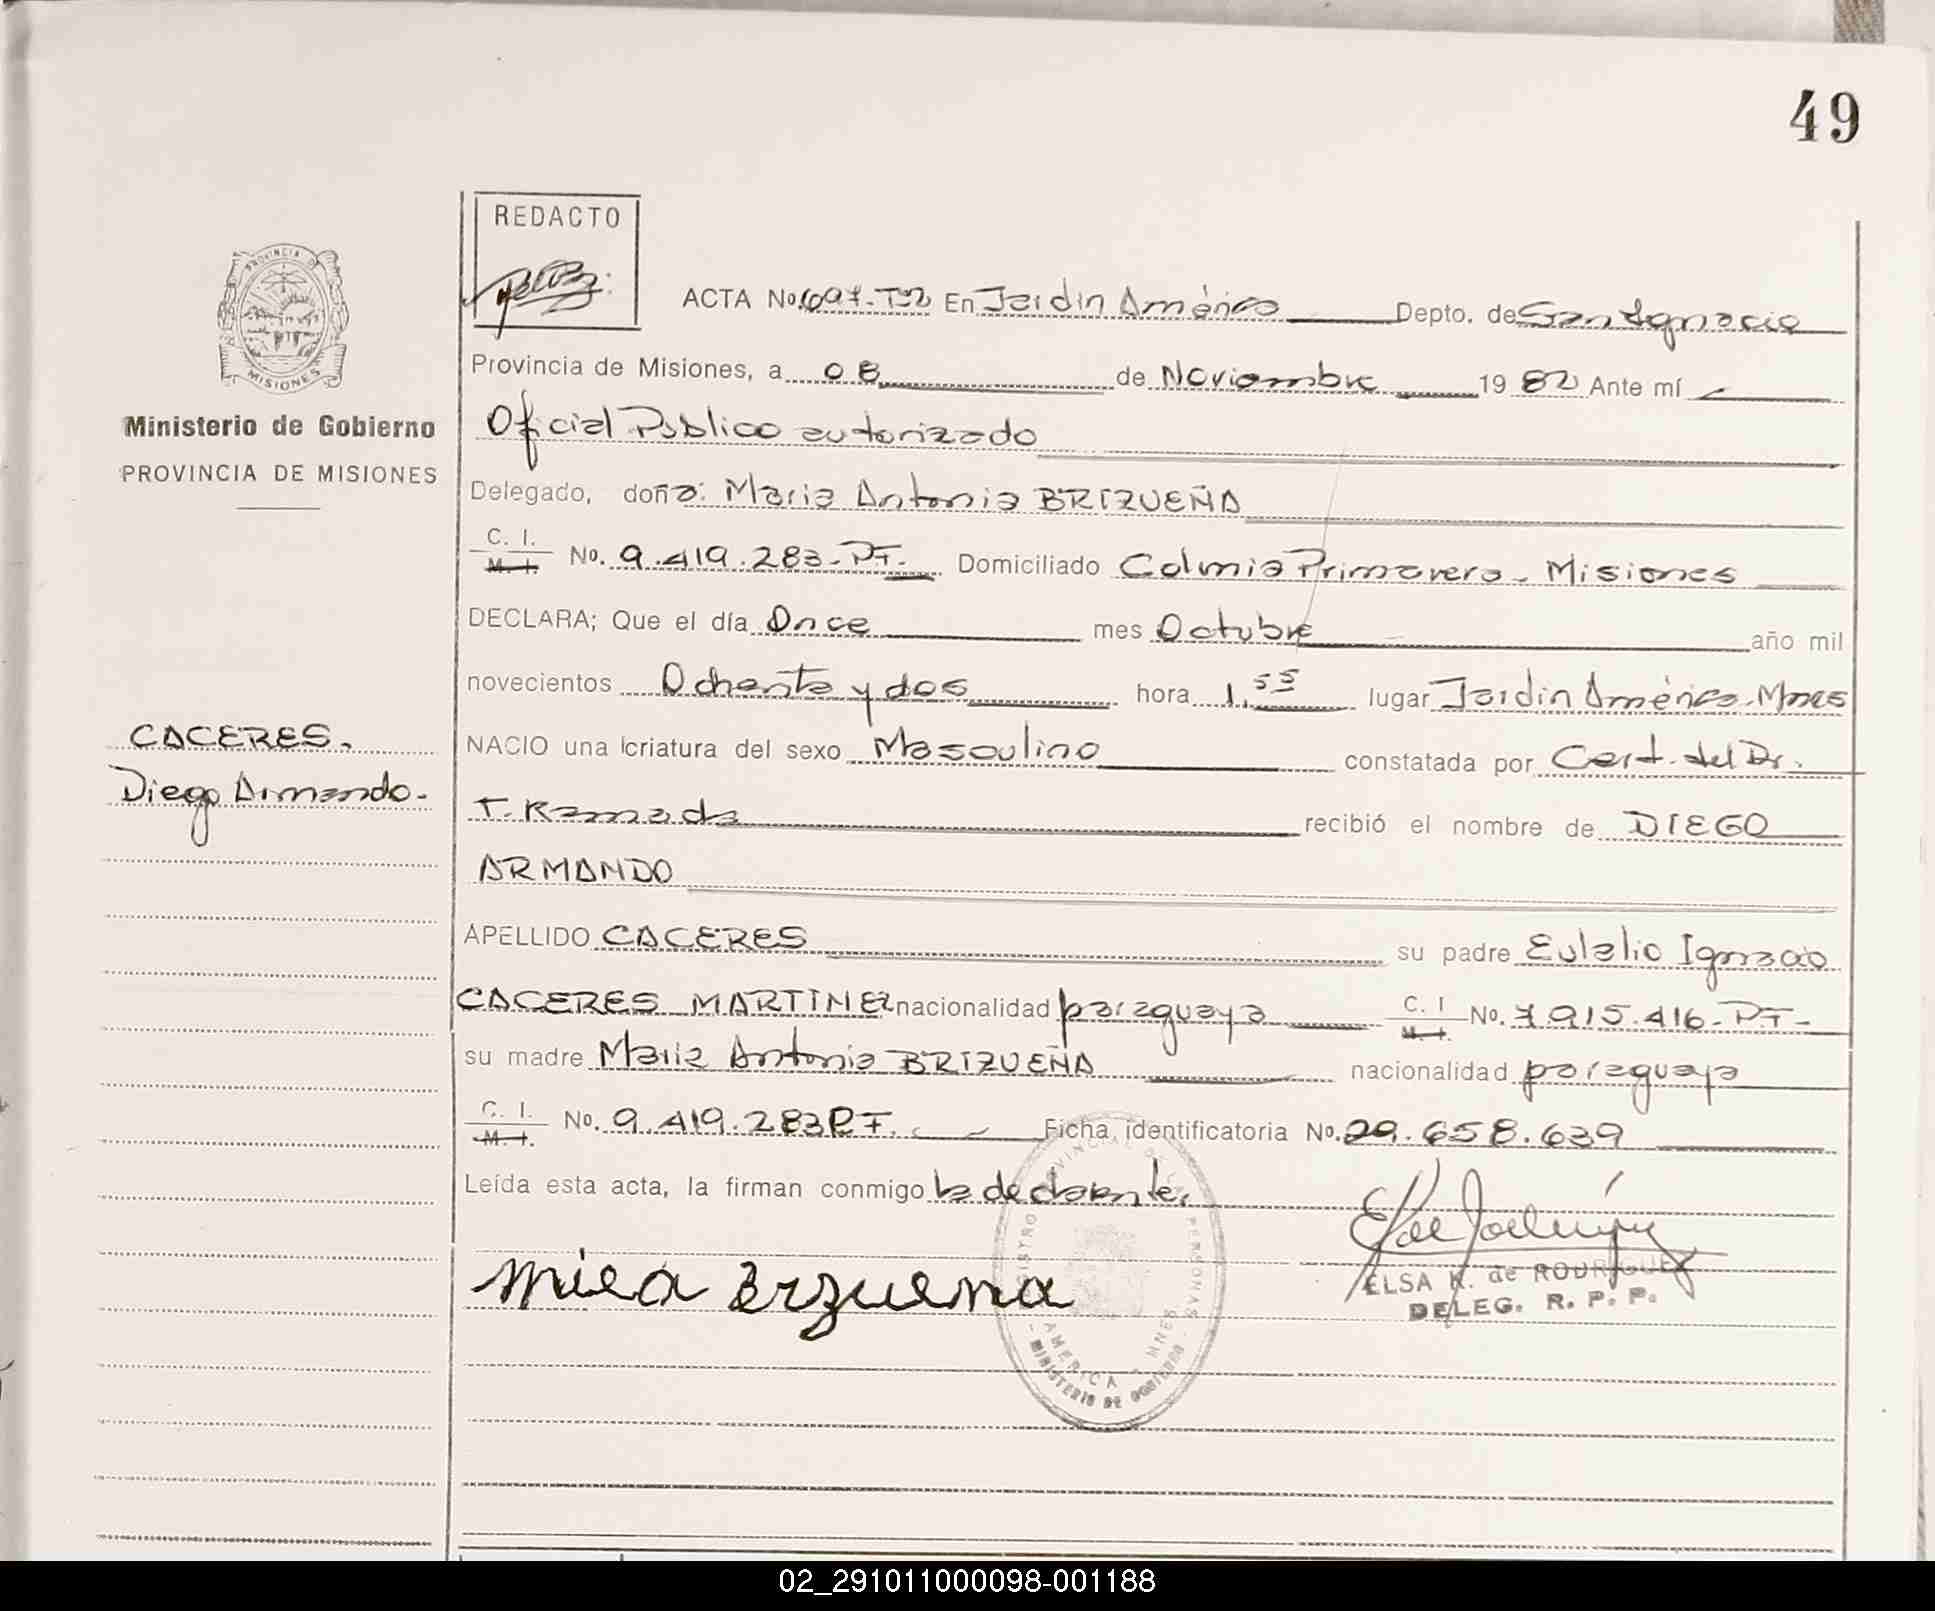 49
REDACTO
ACTA No. 697-T2 En Jardin América Depto. de San Ignacio
Provincia de Misiones, a 08 de Noviembre 1982 Ante mí
Ministerio de Gobierno
PROVINCIA DE MISIONES
Oficial Publico autorizado
Delegado, doña: Maria Antonia BRIZUEÑA
C. I. M. I. No. 9.419.283-PF. Domiciliado Colonia Primavera - Misiones
DECLARA; Que el día Once mes Octubre año mil
novecientos Ochenta y dos hora 1,55 lugar Jardin América-Mnes
CACERES.
Diego Armando.
NACIO una criatura del sexo Masculino constatada por Cert. del Dr.
T. Ramada recibió el nombre de DIEGO
ARMANDO
APELLIDO CACERES su padre Eulalio Ignacio
CACERES MARTINEZ nacionalidad paraguaya C. I M. I. No. 7.915.416-PF-
su madre Maria Antonia BRIZUEÑA nacionalidad paraguaya
C. I. M. I. No. 9.419.283PF. Ficha identificatoria No. 29.658.639
Leída esta acta, la firman conmigo la declarante.
ELSA K. de RODRIGUEZ
DELEG. R. P. P.
MINISTERIO DE GOBIERNO
02_291011000098-001188